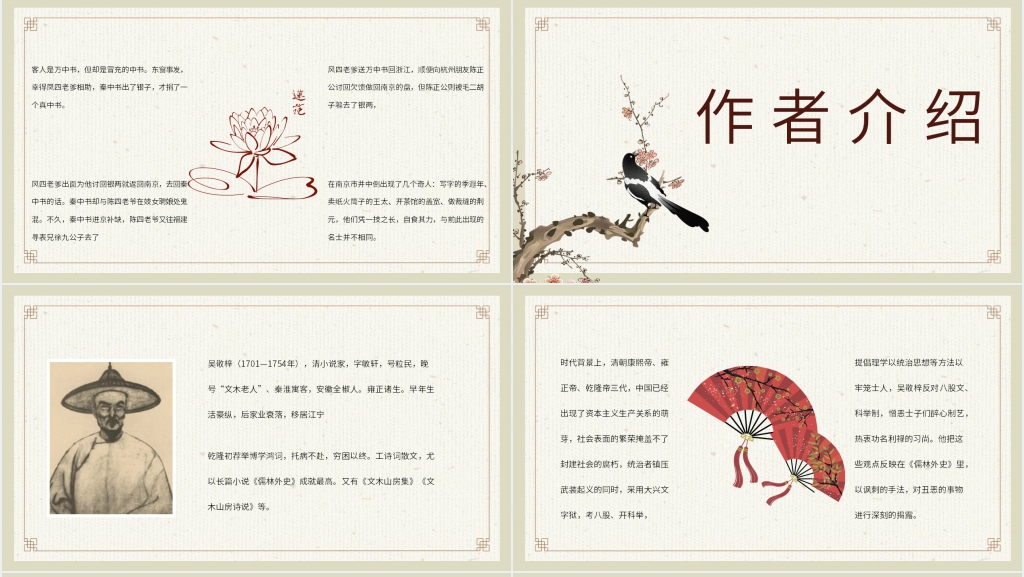 客人是万中书，但却是冒充的中书。东窗事发，
幸得凤四老爹相助，秦中书出了银子，才捐了一
个真中书。
莲花
风四老爹送万中书回浙江，顺便向杭州朋友陈正
公讨回欠债做回南京的盘。但陈正公则被毛二胡
子骗去了银两。
凤四老爹出面为他讨回银两就返回南京，去回秦
中书的话。秦中书却与陈四老爷在妓女聘娘处鬼
混。不久，秦中书进京补缺，陈四老爷又往福建
寻表兄徐九公子去了
在南京市井中倒出现了几个奇人：写字的季遐年、
卖纸火筒子的王太、开茶馆的盖宽、做裁缝的荆
元，他们凭一技之长，自食其力，与前此出现的
名士并不相同。
作者介绍
吴敬梓（1701—1754年），清小说家，字敏轩，号粒民，晚
号“文木老人”、秦淮寓客，安徽全椒人。雍正诸生。早年生
活豪纵，后家业衰落，移居江宁
乾隆初荐举博学鸿词，托病不赴，穷困以终。工诗词散文，尤
以长篇小说《儒林外史》成就最高。又有《文木山房集》《文
木山房诗说》等。
时代背景上，清朝康熙帝、雍
正帝、乾隆帝三代，中国已经
出现了资本主义生产关系的萌
芽，社会表面的繁荣掩盖不了
封建社会的腐朽，统治者镇压
武装起义的同时，采用大兴文
字狱，考八股、开科举，
提倡理学以统治思想等方法以
牢笼士人，吴敬梓反对八股文、
科举制，憎恶士子们醉心制艺，
热衷功名利禄的习尚。他把这
些观点反映在《儒林外史》里，
以讽刺的手法，对丑恶的事物
进行深刻的揭露。